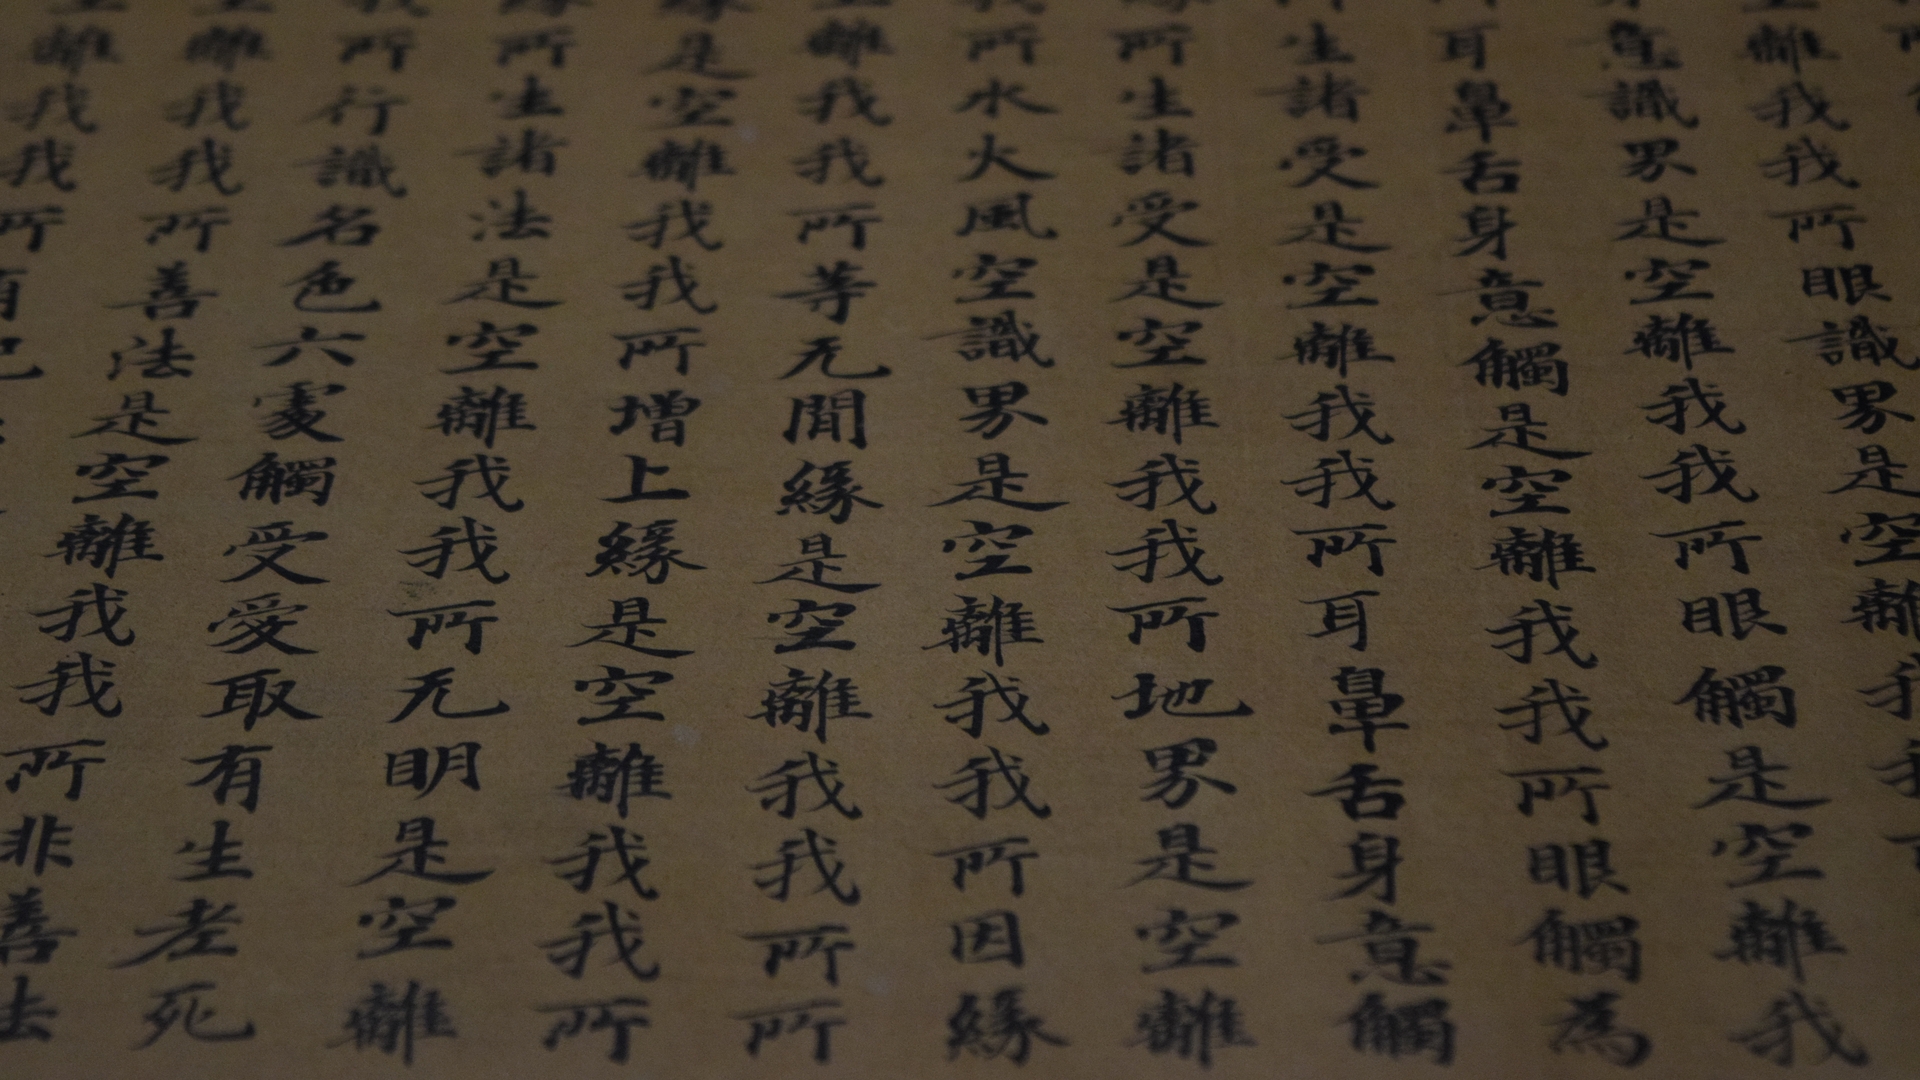 離我我所眼識界是空離我我
意識界是空離我我所眼觸是空離我
耳鼻舌身意觸是空離我我所眼觸為
生諸受是空離我我所耳鼻舌身意觸
所生諸受是空離我我所地界是空離
所水火風空識界是空離我我所因緣
離我我所等无間緣是空離我我所所
是空離我我所增上緣是空離我我所
所生諸法是空離我我所无明是空離
所行識名色六處觸受愛取有生老死
離我我所善法是空離我我所非善法
離我我所